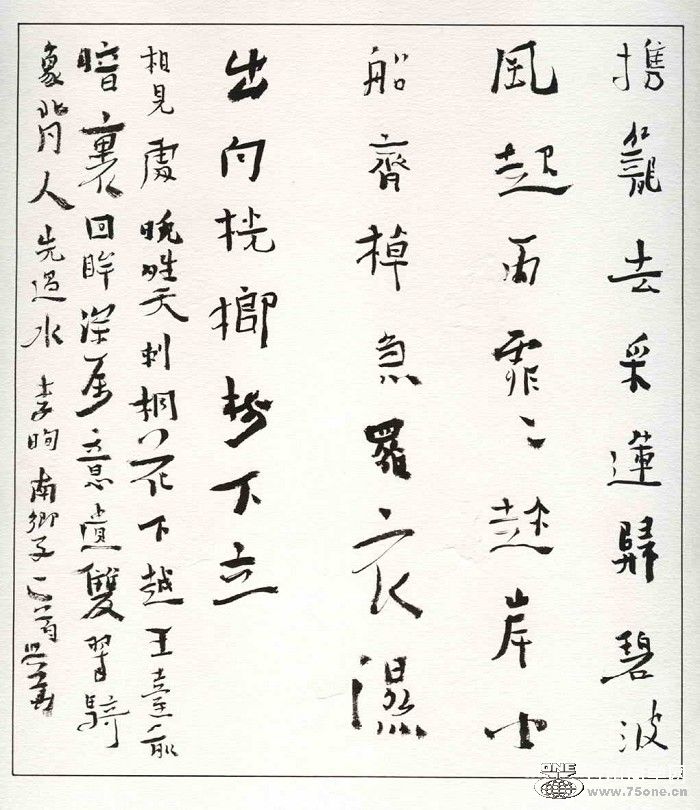 携籠去采蓮歸碧波
風起雨霏〻趂岸小
船齊棹急羅衣濕
出向桄榔樹下立
相見處晚晴天刺桐花下越王臺前
暗裏回眸深属意遺雙翠騎
象背人先過水 李珣南鄉子二首
ONE
www.75one.cn